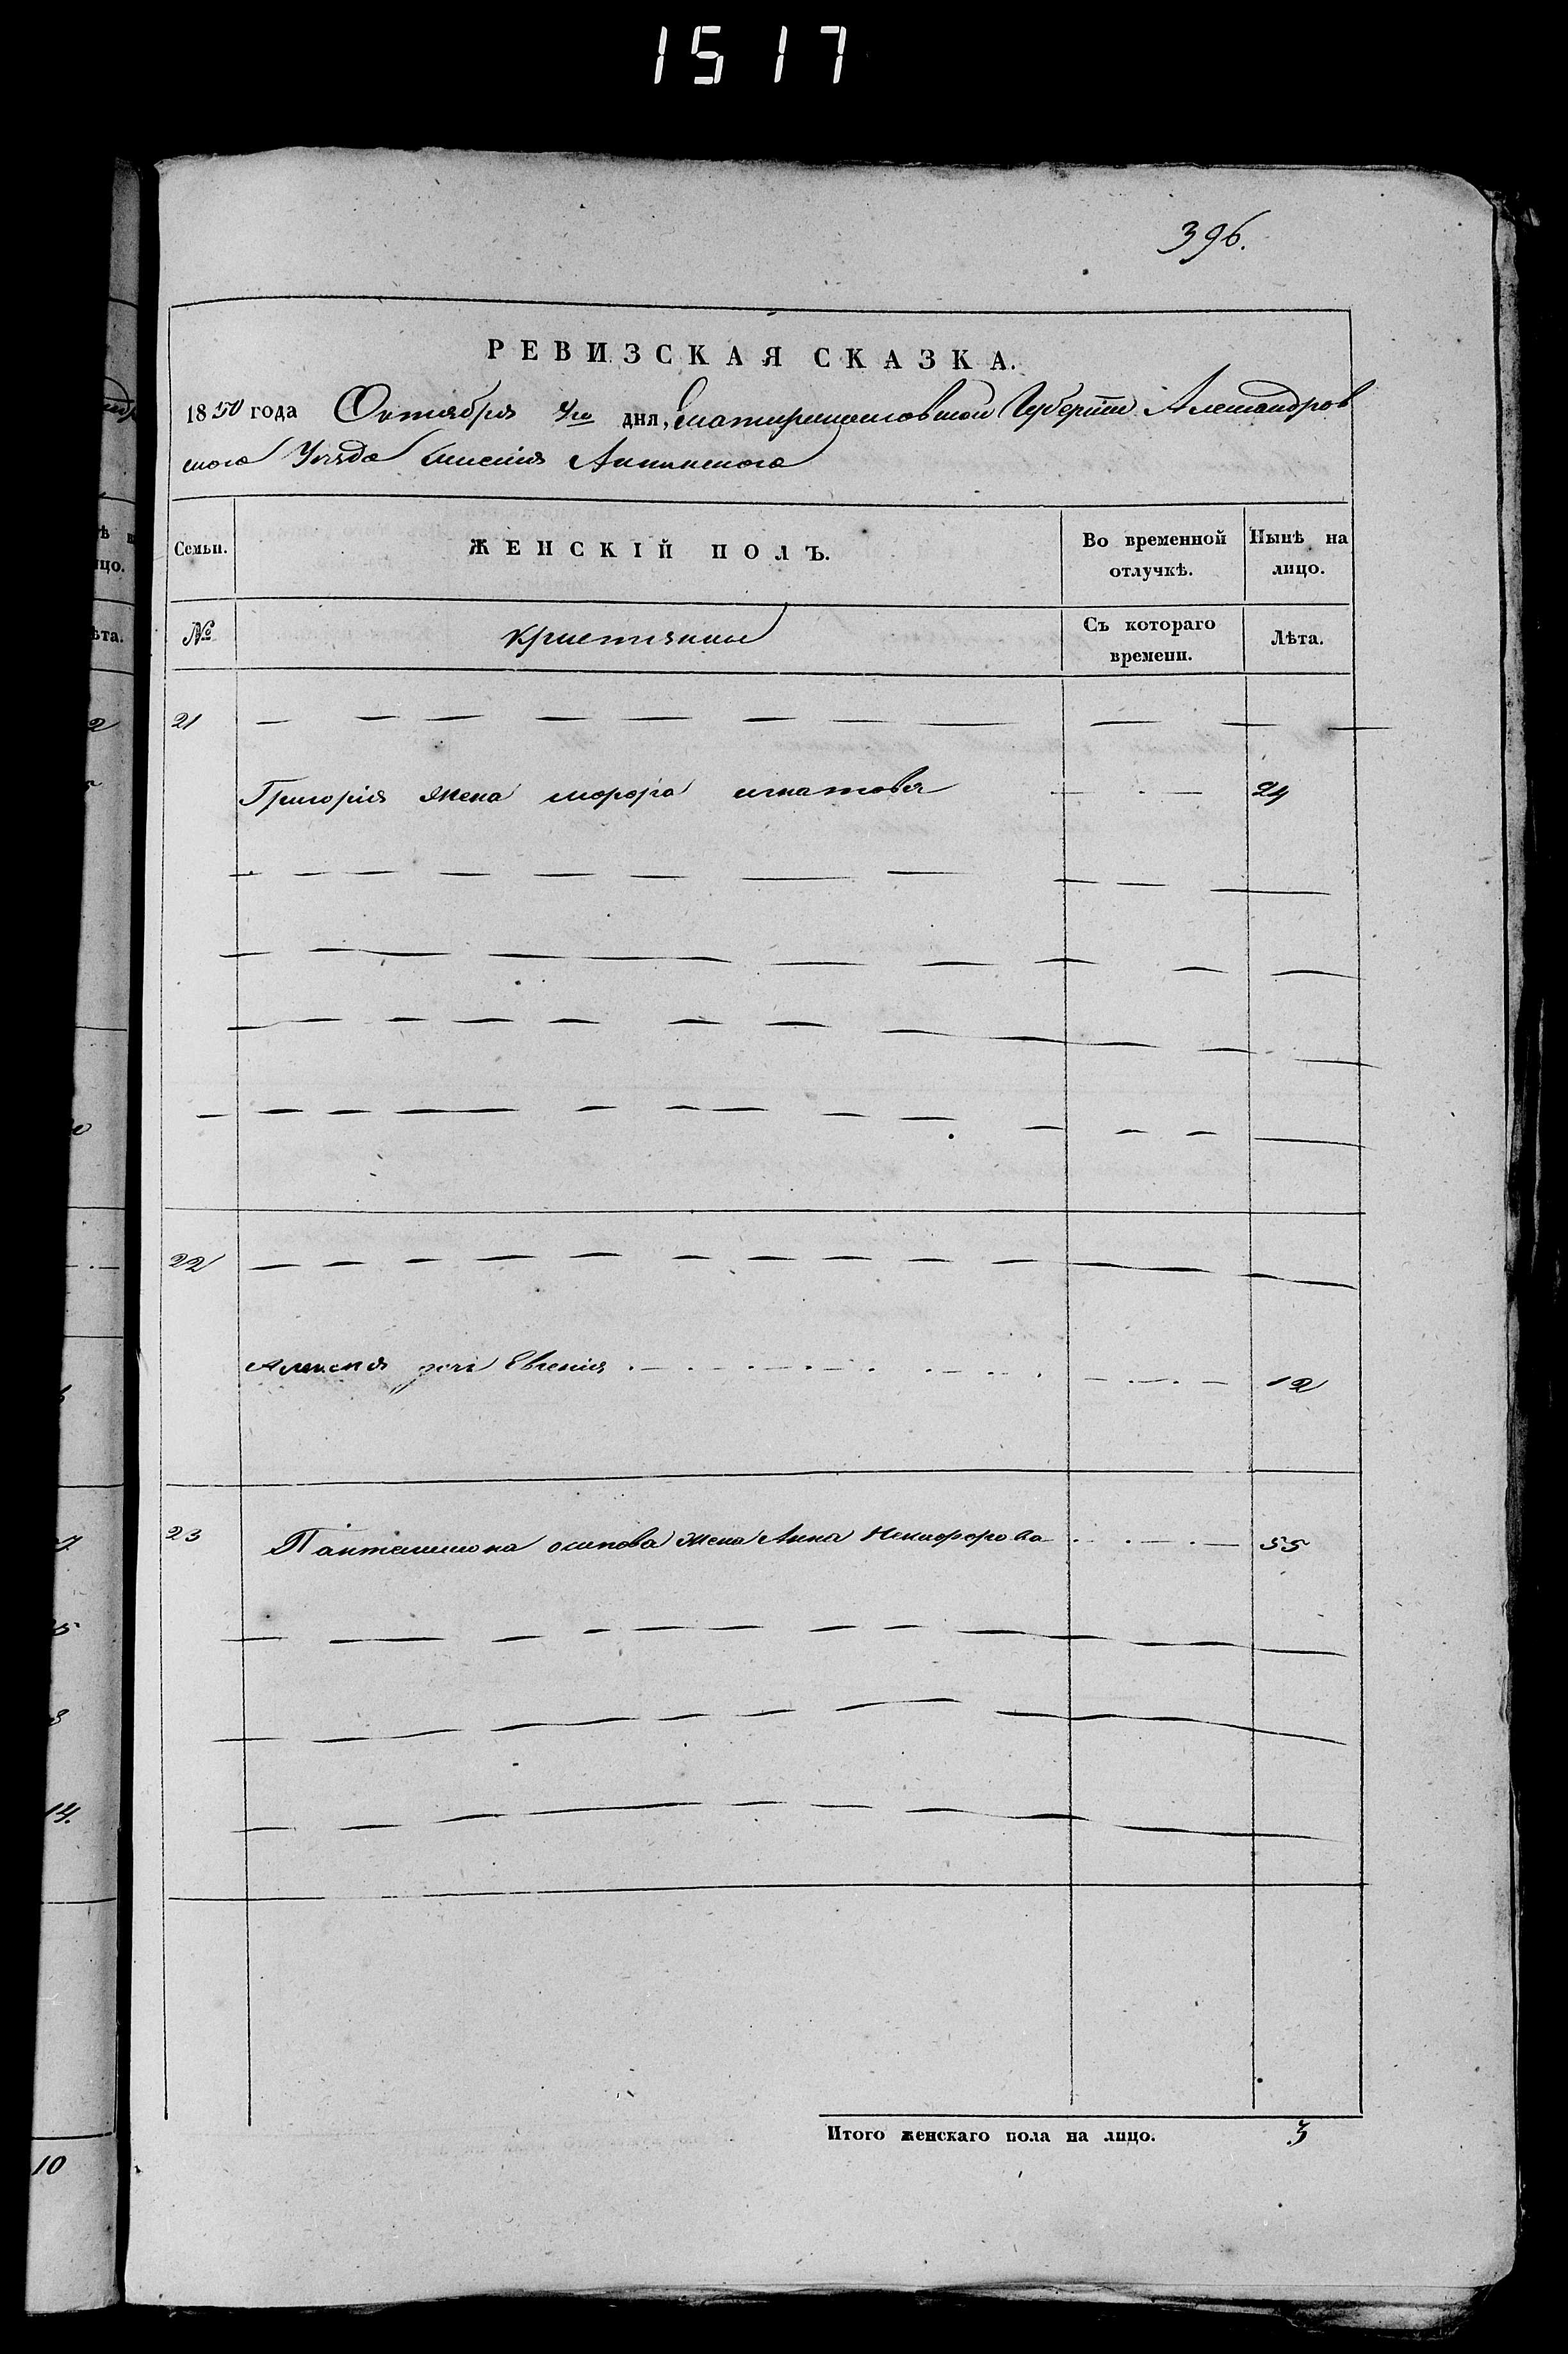 1517
396.
РЕВИЗСКАЯ СКАЗКА.
1850 года Октября дня, Екатеринославской Губернiи Александров
ского Уезда имения
Семьи. ЖЕНСКІЙ ПОЛЪ. Во временной отлучкѣ. Нынѣ на лицо.
№ Съ котораго времени. Лѣта.
21
Григория жена игнатова 24
22
Алексея дочь Евгения 12
23 Пантелимона осипова жена Анна Некифорова 55
Итого женскаго пола на лицо. 3
ѣта.
14.
10